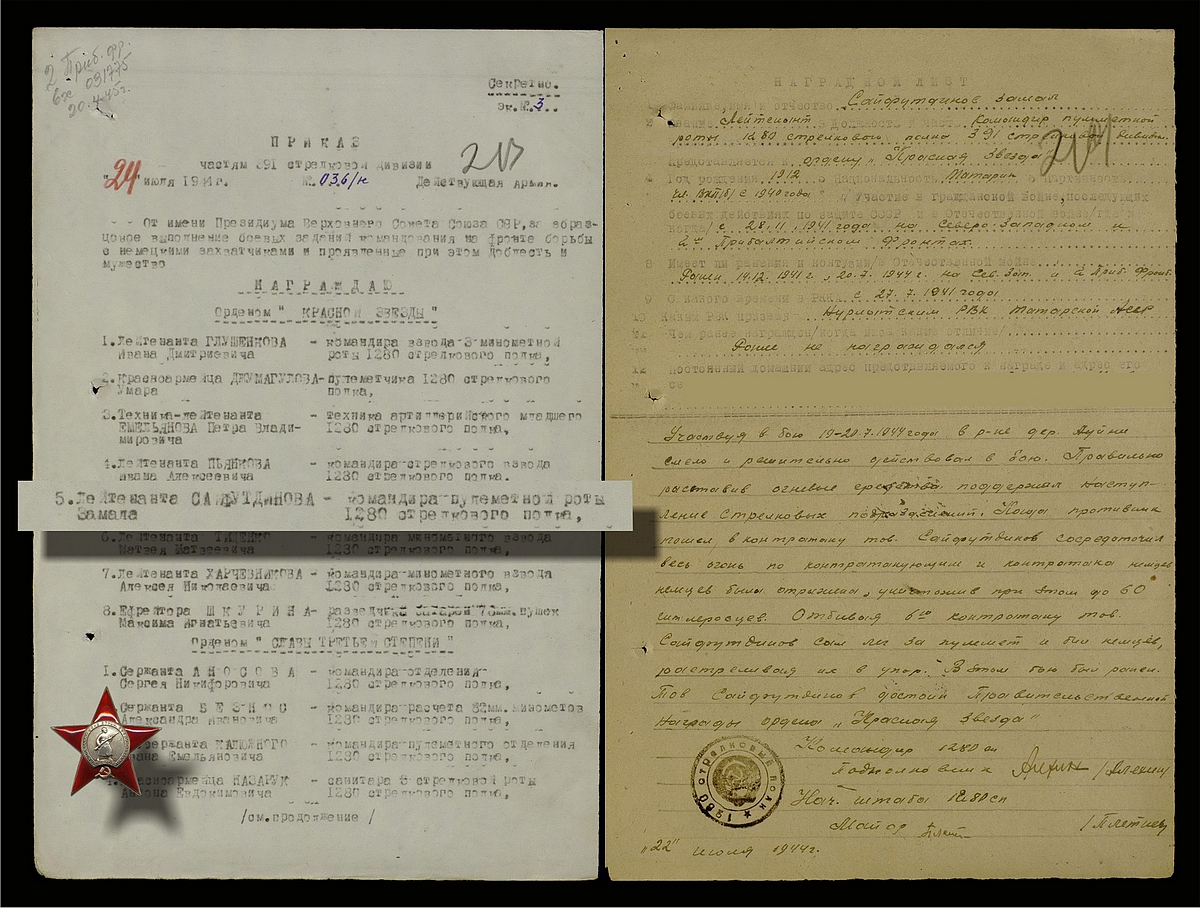 2 Приб. фр.
вх 031775
20.4.45г.
Секретно.
эк.№ 3.
ПРИКАЗ
частям 391 стрелковой дивизии
"24" июля 1944г. №.036/н Действующая Армия.
От имени Президиума Верховного Совета Союза ССР, за образ-
цовое выполнение боевых заданий командования на фронте борьбы
с немецкими захватчиками и проявленные при этом доблесть и
мужество
НАГРАЖДАЮ
Орденом " КРАСНОЙ ЗВЕЗДЫ"
1.Лейтенанта ГЛУШЕНКОВА - командира взвода 3 минометной
Ивана Дмитриевича роты 1280 стрелкового полка,
2.Красноармейца ДЖУМАГУЛОВА-пулеметчика 1280 стрелкового
Умара полка,
3.Техника-лейтенанта - техника артиллерийского младшего
ЕМЕЛЬЯНОВА Петра Влади- 1280 стрелкового полка,
мировича
4.Лейтенанта ПЬЯНКОВА - командира стрелкового взвода
Ивана Алексеевича 1280 стрелкового полка.
5.Лейтенанта САЙФУТДИНОВА - командира пулеметной роты
Замала 1280 стрелкового полка,
6.Лейтенанта ТИЩЕНКО - командира минометного взвода
Матвея Матвеевича 1280 стрелкового полка,
7.Лейтенанта ХАРЧЕВНИКОВА - командира минометного взвода
Алексея Николаевича 1280 стрелкового полка,
8.Ефрейтора ШКУРИНА- разведчика батареи 76мм.пушек
Максима Игнатьевича 1280 стрелкового полка,
Орденом " СЛАВЫ ТРЕТЬЕЙ СТЕПЕНИ "
1.Сержанта АНОСОВА - командира отделения
Сергея Никифоровича 1280 стрелкового полка,
Сержанта БЕЗНОС - командира расчета 82мм.минометов
Александра Ивановича 1280 стрелкового полка,
сержанта КАЛЮЖНОГО - командира пулеметного отделения
Емельяновича 1280 стрелкового полка,
НАЗАРУК - санитара 6 стрелковой роты
Евдокимовича 1280 стрелкового полка,
/см.продолжение /
НАГРАДНОЙ ЛИСТ
Фамилия, имя и отчество Сайфутдинов Замал
Звание Лейтенант Должность и часть Командир пулеметной
роты 1280 стрелкового полка 391 стрелковой дивизии
Представляется к ордену „Красная Звезда"
Год рождения 1912 Национальность Татарин Партийность
чл. ВКП(б) с 1940 года Участие в Гражданской Войне, последующих
боевых действиях по защите СССР и в Отечественной войне/где и
когда/ с 28.11.1941 года на Северо-Западном и
2м Прибалтийском фронтах.
8 Имеет ли ранения и контузии/в Отечественной войне
Ранен 14.12.1941г., 20.7.1944г. на Сев. Зап. и 2 Приб. Фронт.
9 С какого времени в РККА с 27.7.1941 года
10 Каким РВК призван Нурлатским РВК Татарской АССР
11 Чем ранее награжден/
Ранее не награждался
12 Постоянный домашний адрес представляемого к награде и адрес его
се
Участвуя в бою 19-20.7.1944 года в р-не дер.
смело и решительно действовал в бою. Правильно
расставив огневые средства поддержал наступ-
ление стрелковых подразделений. Когда противник
пошел в контратаку тов. Сайфутдинов сосредоточил
весь огонь по контратакующим и контратака немцев
немцев была отражена, уничтожив при этом до 60
гитлеровцев. Отбивая 6ю контратаку тов.
Сайфутдинов сам лег за пулемет и бил немцев,
растреливая их в упор. В этом бою был ранен.
Тов Сайфутдинов достоин Правительственной
Награды ордена „Красная Звезда"
Командир 1280 сп
Подполковник /Алехин/
Нач. штаба 1280 сп
Майор /Плетнев
"22" июля 1944г.
1280 СТРЕЛКОВЫЙ ПОЛК